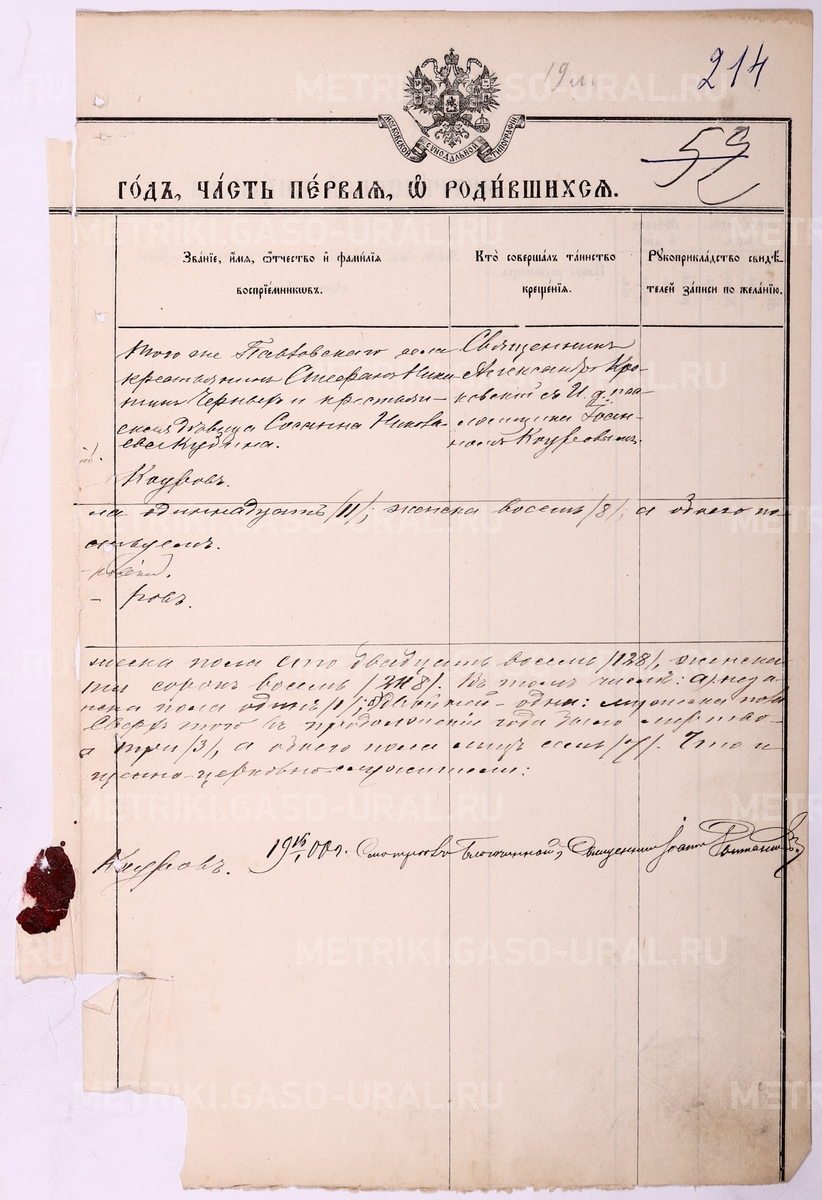 19 л.
214
МОСКОВСКОЙ СѴНОДАЛЬНОЙ ТИПОГРАФІИ
59
ГО́ДЪ, ЧА́СТЬ ПЕ́РВАѦ, Ѡ҆ РОДИ́ВШИХСѦ.
Зва́ніе, и҆́мѧ, ѻ҆́тчество и҆ фами́лїѧ
воспрїе́мникѡвъ.
Кто̀ соверша́лъ та́инство
креще́нїѧ.
Рꙋкоприкла́дство свидѣ́-
телей за́писи по жела́нїю.
того же Павловскаго села
крестьянинъ Стефанъ Ники
тинъ Черныхъ и крестьян-
ская дѣвица Сосанна Никола-
ева Кудрина.
Священникъ
Александръ Кро-
ковскій съ И. д. пса-
ломщика Іоан-
номъ Кауровымъ.
Кауровъ.
ла одиннадцать /11/; женска восемь /8/; а обоего по-
ровъ.
жеска пола сто двадцать восемь /128/, женска
ти сорокъ восемь /248/. Въ томъ числѣ:
нска пола одинъ /1/; двойней - одни:
Сверхъ того въ продолженіи года было мертво
а три /3/, а обоего пола лицъ семь /7/. Что и
щенно-церковно-служители:
Кауровъ.
1900 г. Смотрѣлъ Благочинный, Священникъ Іоаннъ
METRIKI.GASO-URAL.RU